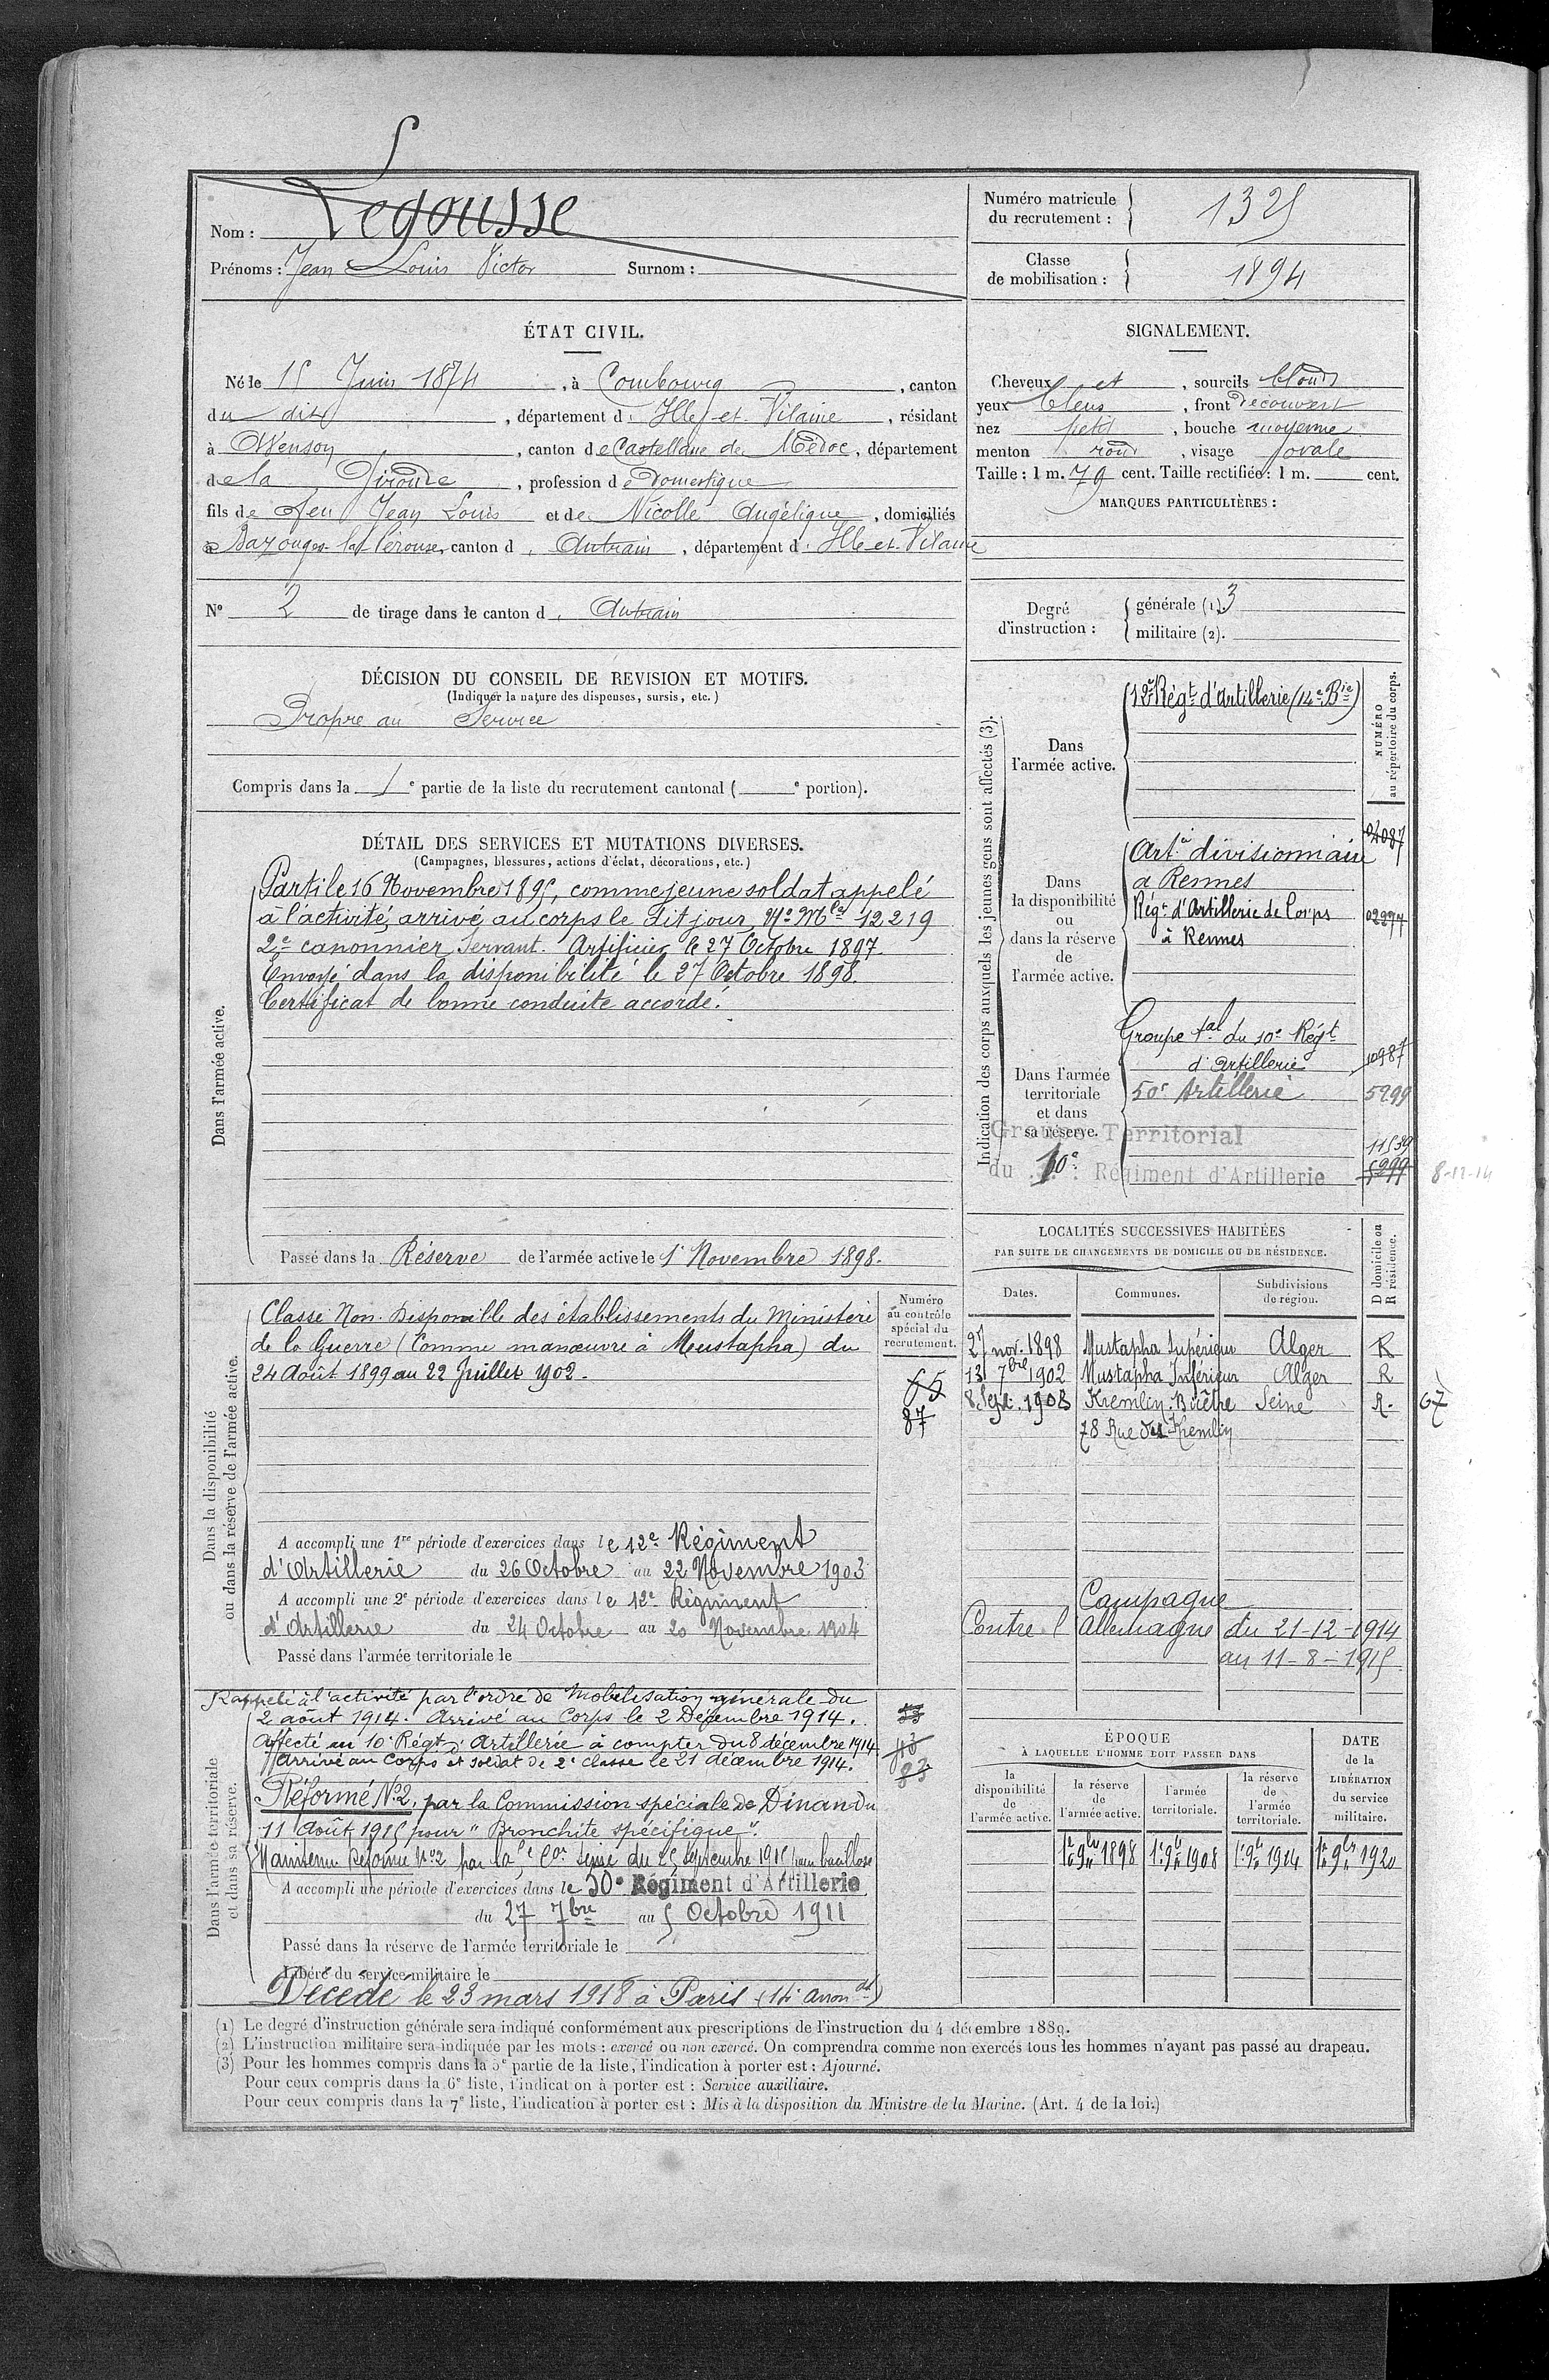 Nom : Legousse
Prénoms : Jean Louis Victor Surnom :
Numéro matricule
du recrutement : 1325
Classe
de mobilisation : 1894
ÉTAT CIVIL.
Né le 15 Juin 1874, à Combourg, canton
du dit, département d. Ille-et-Vilaine, résidant
à, canton de Castelnau de Médoc, département
de la Gironde, profession de Domestique
fils de feu Jean Louis et de Nicolle Angélique, domiciliés
à Bazouges-la-Pérouse, canton d. Antrain, département d. Ille-et-Vilaine
N° 2 de tirage dans le canton d. Antrain
SIGNALEMENT.
Cheveux et, sourcils blonds
yeux bleus, front découvert
nez petit, bouche moyenne
menton rond, visage ovale
Taille : 1 m. 79 cent. Taille rectifiée : 1 m. cent.
MARQUES PARTICULIÈRES :
Degré
d'instruction :
générale (1). 3
militaire (2).
DÉCISION DU CONSEIL DE REVISION ET MOTIFS.
(Indiquer la nature des dispenses, sursis, etc.)
Propre au Service
Compris dans la 1e partie de la liste du recrutement cantonal ( e portion).
DÉTAIL DES SERVICES ET MUTATIONS DIVERSES.
(Campagnes, blessures, actions d'éclat, décorations, etc.)
Dans l'armée active.
Parti le 16 Novembre 1895, comme jeune soldat appelé
à l'activité, arrivé au corps le dit jour, No Mle 12219
2e canonnier Servant. Artificier le 27 Octobre 1897.
Envoyé dans la disponibilité le 27 Octobre 1898.
Certificat de bonne conduite accordé.
Passé dans la Réserve de l'armée active le 1er Novembre 1898.
Indication des corps auxquels les jeunes gens sont affectés (3).
NUMÉRO
au répertoire du corps.
Dans
l'armée active.
12e Régt d'Artillerie (14e Bie)
Dans
la disponibilité
ou
dans la réserve
de
l'armée active.
Artie divisionnaire 04087
a Rennes
Régt d'Artillerie de Corps 02277
à Rennes
Dans l'armée
territoriale
et dans
sa réserve.
Groupe tal du 10e Régt
d'Artillerie 10987
50e Artillerie 5299
Groupe Territorial 11539
du 10e Régiment d'Artillerie 5299 8-12-14
Dans la disponibilité
ou dans la réserve de l'armée active.
Numéro
au contrôle
spécial du
recrutement.
Classé Non-Disponible des établissements du Ministère
de la Guerre (Comme manœuvre à Mustapha) du
24 Août 1899 au 22 Juillet 1902.
65
87
A accompli une 1re période d'exercices dans le 12e Régiment
d'Artillerie du 26 Octobre au 22 Novembre 1903
A accompli une 2e période d'exercices dans le 12e Régiment
d'Artillerie du 24 Octobre au 20 Novembre 1904
Passé dans l'armée territoriale le
LOCALITÉS SUCCESSIVES HABITÉES
PAR SUITE DE CHANGEMENTS DE DOMICILE OU DE RÉSIDENCE.
Dates. Communes. Subdivisions
de région. D domicile ou
R résidence.
27 nov. 1898 Mustapha Supérieur Alger R
13 7bre 1902 Mustapha Inférieur Alger R
8 Sept. 1908 Kremlin-Bicêtre Seine R. 67
78 Rue du Kremlin
Campagne
Contre l'Allemagne du 21-12-1914
au 11-8-1915
Dans l'armée territoriale
et dans sa réserve.
Rappelé à l'activité par l'ordre de Mobilisation générale du
2 août 1914. Arrivé au Corps le 2 Décembre 1914.
Affecté au 10e Régt d'Artillerie à compter du 8 décembre 1914
Arrivé au Corps et soldat de 2e classe le 21 décembre 1914.
Réformé No 2, par la Commission spéciale de Dinan du
11 Août 1915 pour "Bronchite spécifique".
Maintenu Réformé No 2 par la Seine du 25 septembre 1915 pour bacillose
A accompli une période d'exercices dans le 50e Régiment d'Artillerie
du 27 7bre au 5 Octobre 1911
Passé dans la réserve de l'armée territoriale le
Libéré du service militaire le
Décédé le 23 mars 1918 à Paris (14e arrondt)
83
ÉPOQUE
À LAQUELLE L'HOMME DOIT PASSER DANS
la
disponibilité
de
l'armée active.
la réserve
de
l'armée active.
l'armée
territoriale.
la réserve
de
l'armée
territoriale.
DATE
de la
LIBÉRATION
du service
militaire.
1er 9bre 1898 1er 9bre 1908 1er 9bre 1914 1er 9bre 1920
(1) Le degré d'instruction générale sera indiqué conformément aux prescriptions de l'instruction du 4 décembre 1889.
(2) L'instruction militaire sera indiquée par les mots : exercé ou non exercé. On comprendra comme non exercés tous les hommes n'ayant pas passé au drapeau.
(3) Pour les hommes compris dans la 5e partie de la liste, l'indication à porter est : Ajourné.
Pour ceux compris dans la 6e liste, l'indication à porter est : Service auxiliaire.
Pour ceux compris dans la 7e liste, l'indication à porter est : Mis à la disposition du Ministre de la Marine. (Art. 4 de la loi.)